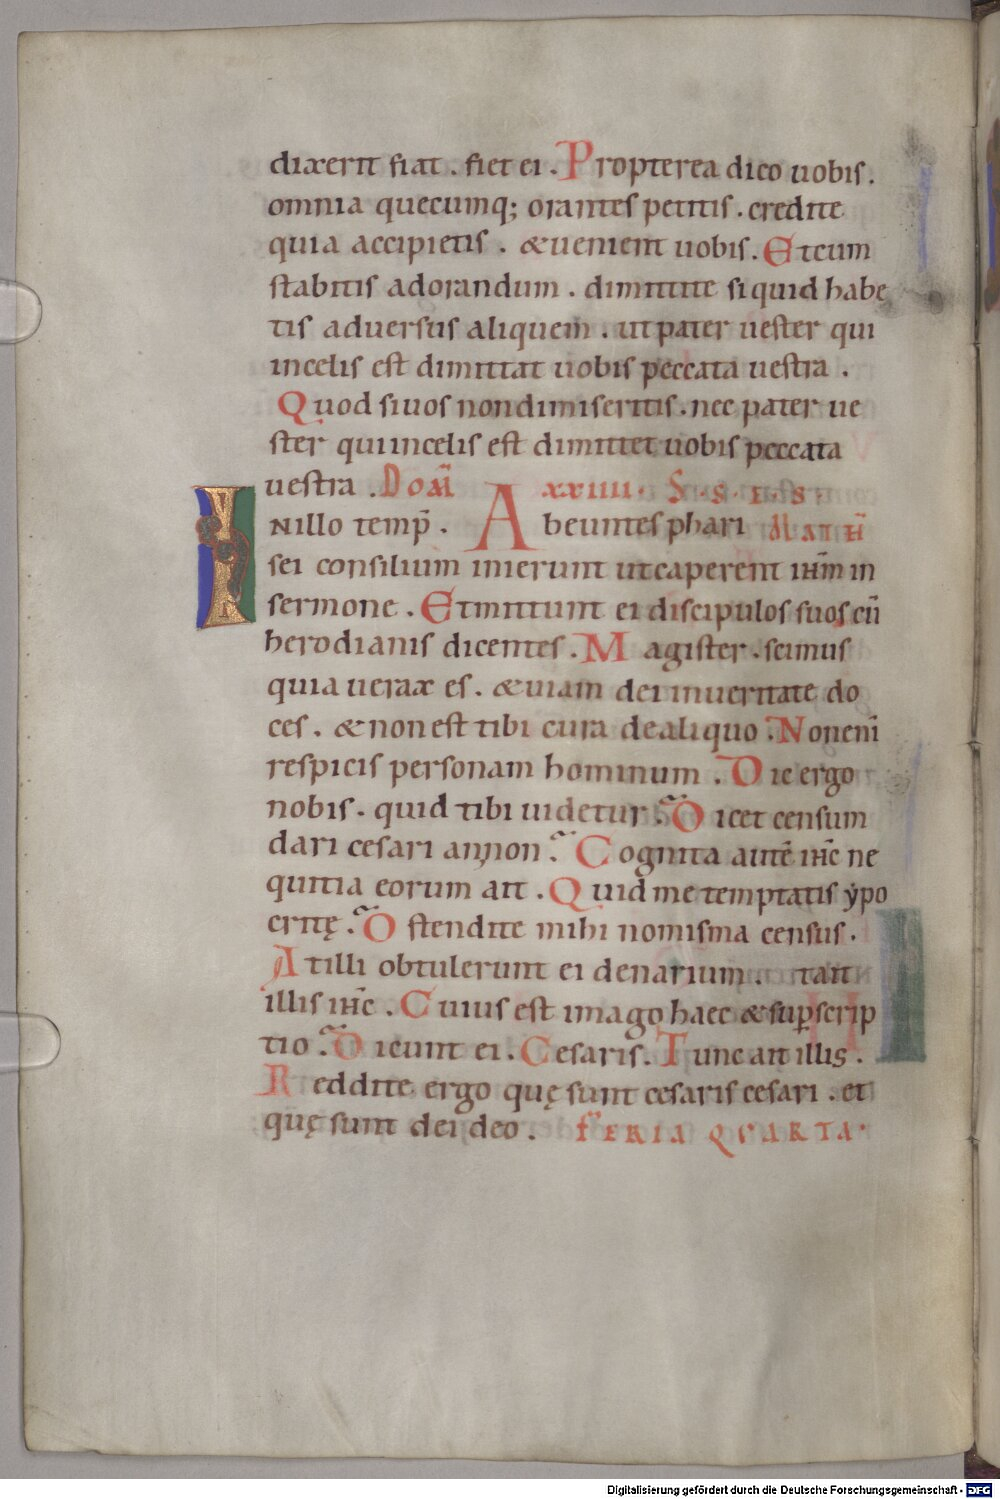 dixerit fiat . fiet ei . Propterea dico uobis .
omnia quecumq; orantes petitis . credite
quia accipietis . & uenient uobis . Et cum
stabitis adorandum . dimittite si quid habe
tis aduersus aliquem . ut pater uester qui
in celis est dimittat uobis peccata uestra .
Quod si uos non dimiseritis . nec pater ue
ster qui in celis est dimittet uobis peccata
uestra . Dom̄ xxiiii . S . S . E . S .
INillo temp̄ . Abeuntes phari MATH̄
sei consilium inierunt ut caperent ihm̄ in
sermone . Et mittunt ei discipulos suos cū
herodianis dicentes . Magister . scimus
quia uerax es . & uiam dei in ueritate do
ces . & non est tibi cura de aliquo . Non enī
respicis personam hominum . Dic ergo
nobis . quid tibi uidetur ? Licet censum
dari cesari an non ? Cognita autē ihc̄ ne
quitia eorum ait . Quid me temptatis ypo
critę ? Ostendite mihi nomisma census .
At illi obtulerunt ei denarium . et ait
illis ihc̄ . Cuius est imago haec & sup̄scrip
tio ? Dicunt ei . Cesaris . Tunc ait illis .
Reddite ergo quę sunt cesaris cesari . et
quę sunt dei deo . FERIA QUARTA .
Digitalisierung gefördert durch die Deutsche Forschungsgemeinschaft - DFG